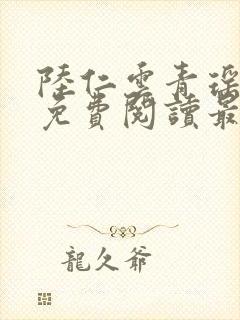 陸仁雲青瑤
免費閱讀最
龍久爺